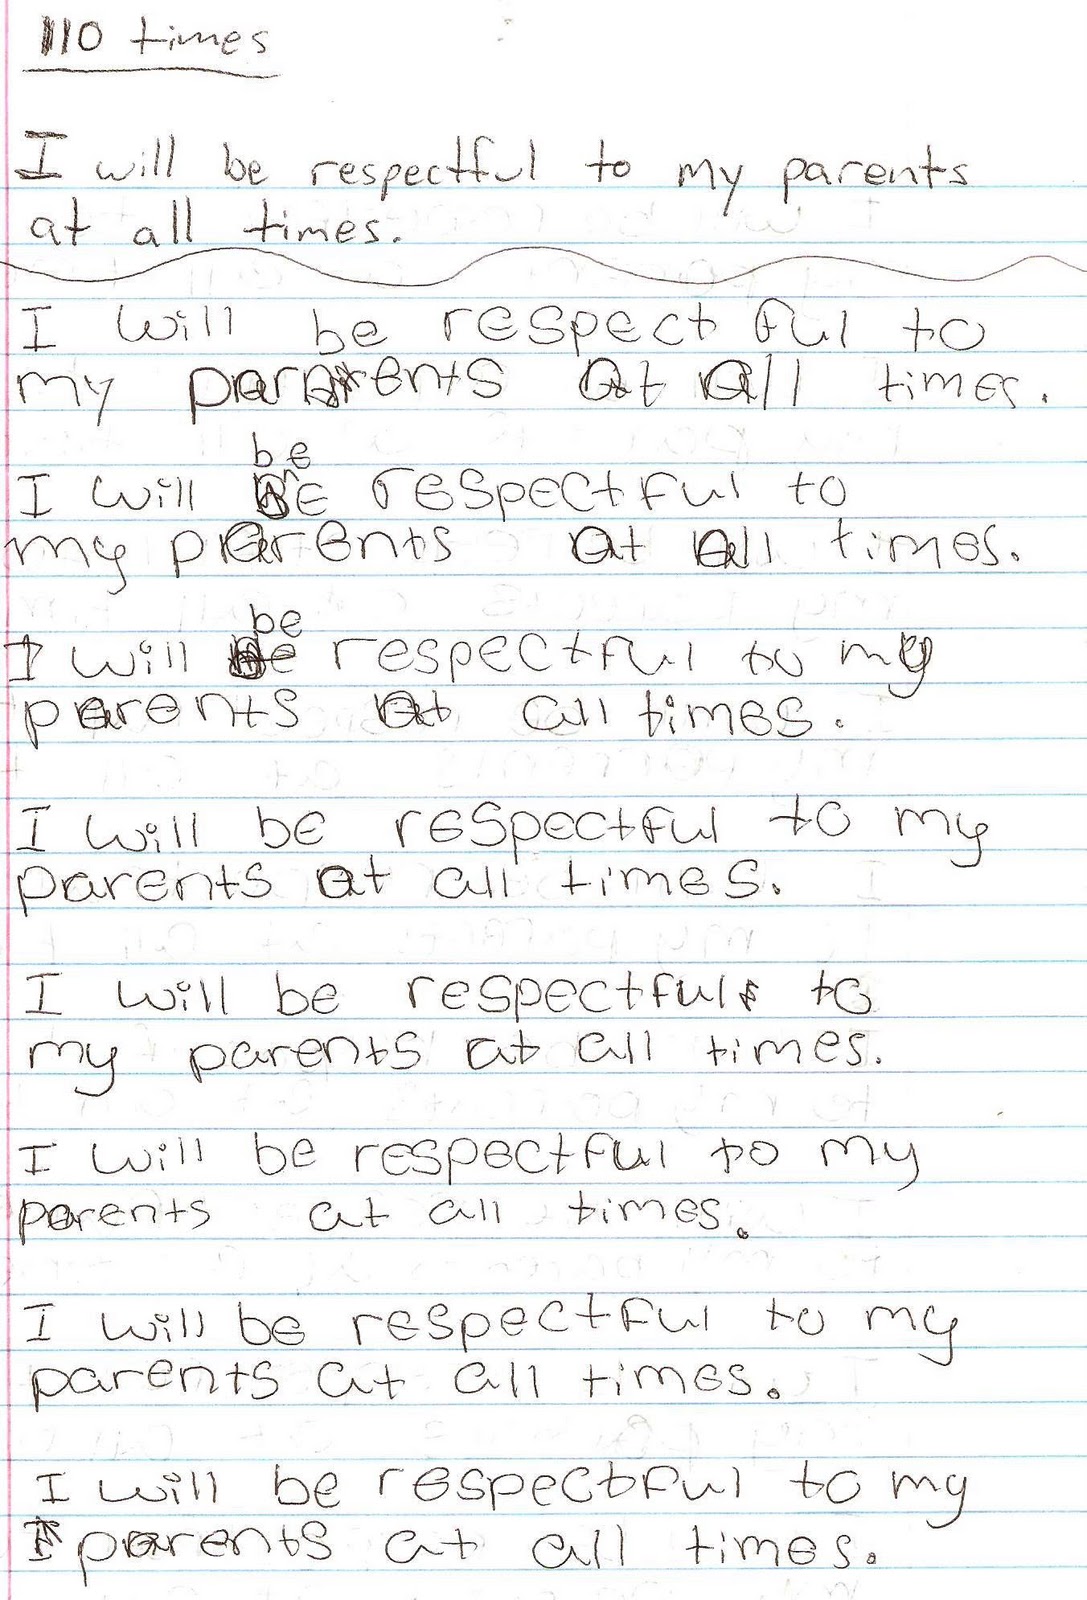 110 times
I will be respectful to my parents
at all times.
I will be respectful to
my parents at all times.
be
I will Be respectful to
my parents at all times.
be
I will be respectful to my
parents at all times.
I will be respectful to my
parents at all times.
I will be respectful to
my parents at all times.
I will be respectful to my
parents at all times.
I will be respectful to my
parents at all times.
I will be respectful to my
parents at all times.